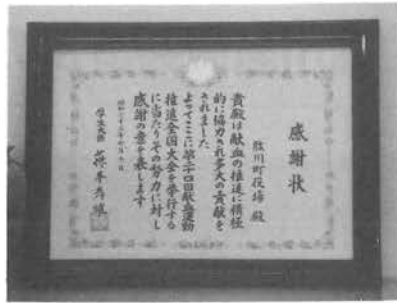 感謝状
肱川町役場 殿
貴殿は献血の推進に積極
的に協力され多大の貢献を
されました
よってここに第二十四回献血運動
推進全国大会を挙行する
に当たりその努力に対し
感謝の意を表します
昭和六十三年七月 日
厚生大臣 藤本孝雄